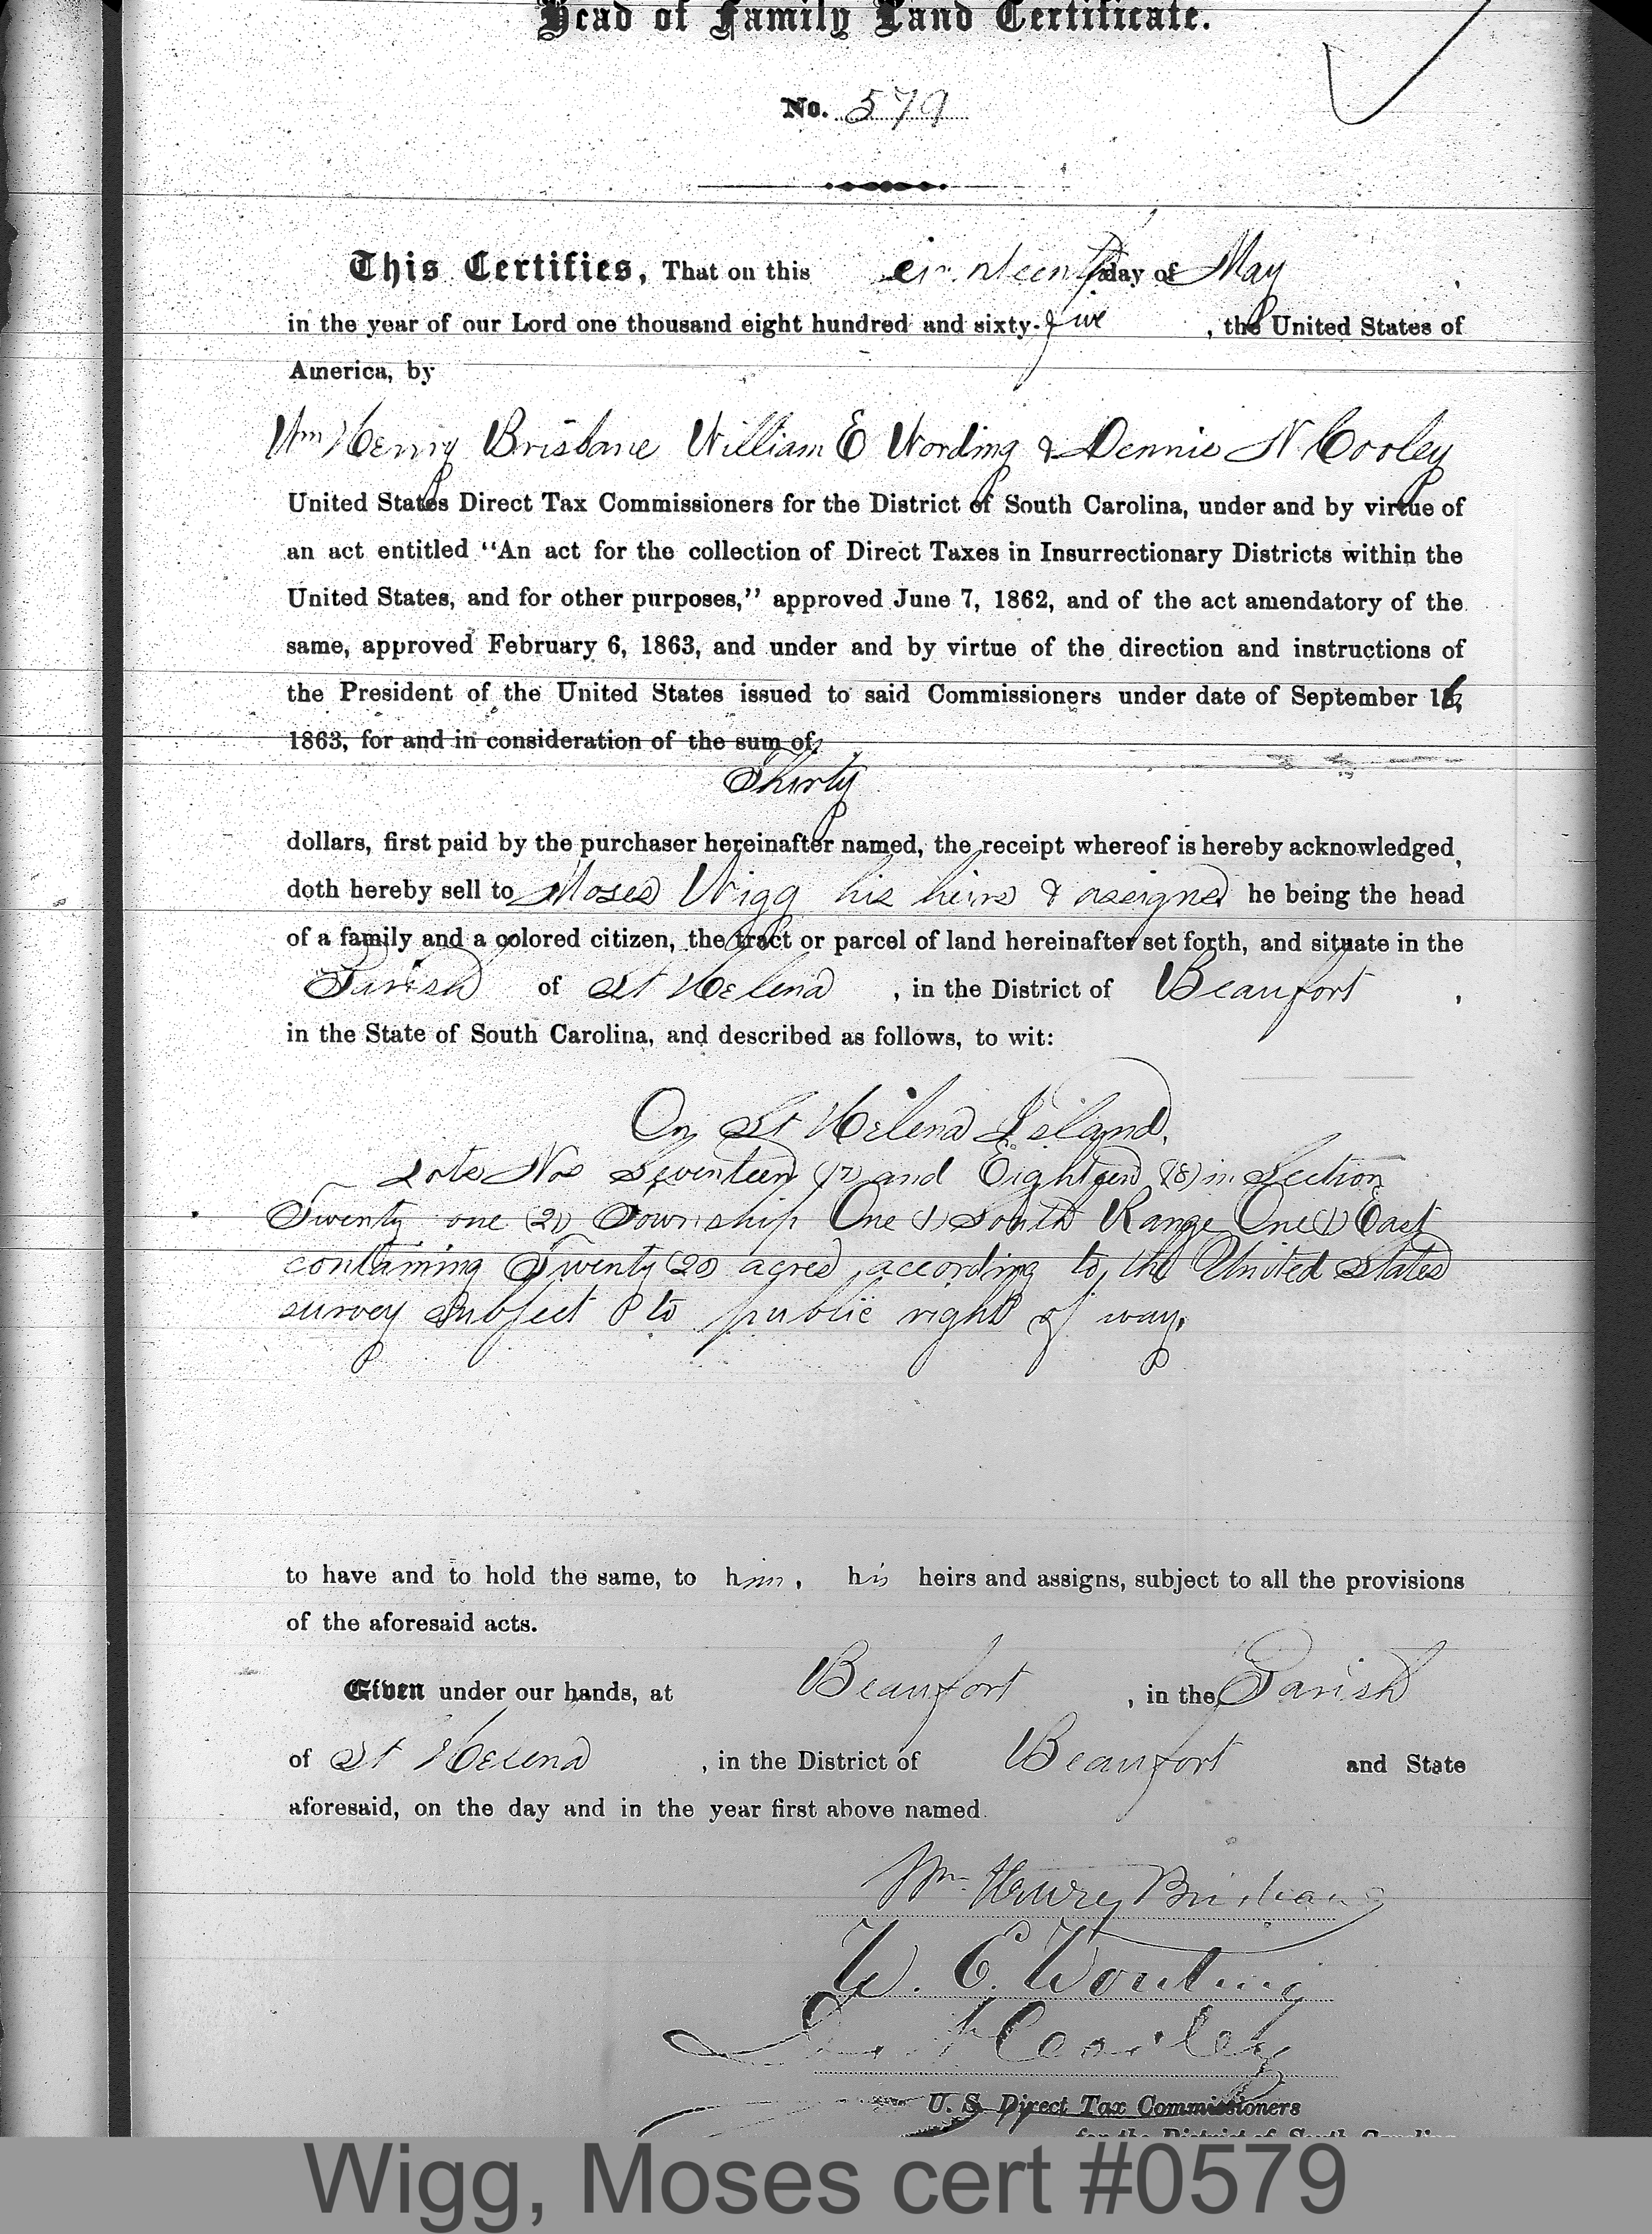 Head of Family Land Certificate.
No. 579
This Certifies, That on this day of May,
in the year of our Lord one thousand eight hundred and sixty-five, the United States of
America, by
Wm Henry Brisbane William E Wording & Dennis N Cooley
United States Direct Tax Commissioners for the District of South Carolina, under and by virtue of
an act entitled "An act for the collection of Direct Taxes in Insurrectionary Districts within the
United States, and for other purposes," approved June 7, 1862, and of the act amendatory of the
same, approved February 6, 1863, and under and by virtue of the direction and instructions of
the President of the United States issued to said Commissioners under date of September 16,
1863, for and in consideration of the sum of
Thirty
dollars, first paid by the purchaser hereinafter named, the receipt whereof is hereby acknowledged,
doth hereby sell to Moses Wigg his heirs & assigns he being the head
of a family and a colored citizen, the tract or parcel of land hereinafter set forth, and situate in the
Parish of St Helena, in the District of Beaufort,
in the State of South Carolina, and described as follows, to wit:
On St Helena Island.
Lots Nos Seventeen (17) and Eighteen (18) in Section
Twenty one (21) Township One (1) South Range One (1) East
containing Twenty (20) acres, according to the United States
survey subject to public right of way.
to have and to hold the same, to him, his heirs and assigns, subject to all the provisions
of the aforesaid acts.
Given under our hands, at Beaufort, in the Parish
of St Helena, in the District of Beaufort and State
aforesaid, on the day and in the year first above named.
Wm. Henry Brisbane
W. E. Wording
Cooley
U. S. Direct Tax Commissioners
for the District of South Carolina
Wigg, Moses cert #0579